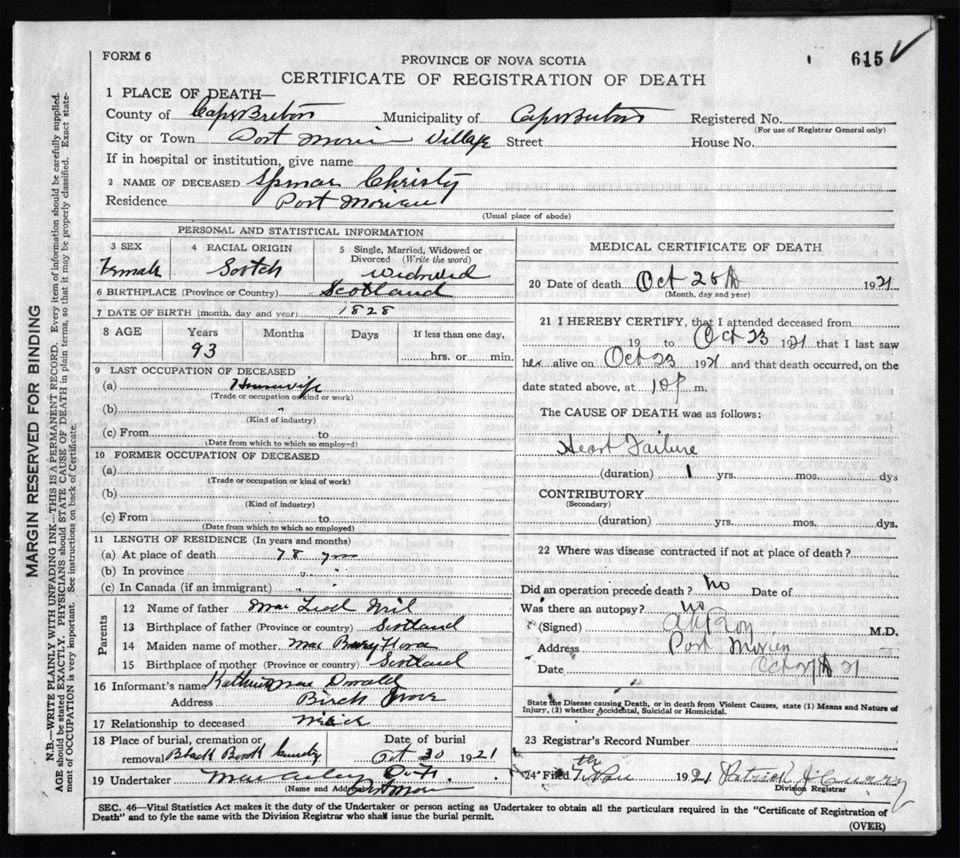 FORM 6
615
PROVINCE OF NOVA SCOTIA
CERTIFICATE OF REGISTRATION OF DEATH
1 PLACE OF DEATH—
County of Cape Breton Municipality of Cape Breton Registered No.
(For use of Registrar General only)
City or Town Port Morien Village Street House No.
If in hospital or institution, give name
2 NAME OF DECEASED Christy
Residence Port Morien
(Usual place of abode)
PERSONAL AND STATISTICAL INFORMATION
3 SEX Female
4 RACIAL ORIGIN Scotch
5 Single, Married, Widowed or Divorced (Write the word) Widowed
6 BIRTHPLACE (Province or Country) Scotland
7 DATE OF BIRTH (month, day and year) 1828
8 AGE Years Months Days If less than one day,
93 hrs. or min.
9 LAST OCCUPATION OF DECEASED
(a) Housewife
(Trade or occupation or kind or work)
(b) "
(Kind of industry)
(c) From to
(Date from which to which so employed)
10 FORMER OCCUPATION OF DECEASED
(a)
(Trade or occupation or kind of work)
(b)
(Kind of industry)
(c) From to
(Date from which to which so employed)
11 LENGTH OF RESIDENCE (In years and months)
(a) At place of death 78 yrs
(b) In province " "
(c) In Canada (if an immigrant) " "
Parents
12 Name of father Mac Leod
13 Birthplace of father (Province or country) Scotland
14 Maiden name of mother Mac
15 Birthplace of mother (Province or country) Scotland
16 Informant's name Mac Donald
Address Birch Grove
17 Relationship to deceased Niece
18 Place of burial, cremation or removal Black Brook
Date of burial Oct 30 1921
19 Undertaker
(Name and Address) Port Morien
MEDICAL CERTIFICATE OF DEATH
20 Date of death Oct 28th 1921
(Month, day and year)
21 I HEREBY CERTIFY, that I attended deceased from
19 to Oct 23 1921 that I last saw
her alive on Oct 23 1921 and that death occurred, on the
date stated above, at 10 p m.
The CAUSE OF DEATH was as follows:
Heart Failure
(duration) 1 yrs. mos. dys
CONTRIBUTORY
(Secondary)
(duration) yrs. mos. dys.
22 Where was disease contracted if not at place of death?
Did an operation precede death? No Date of
Was there an autopsy? No
(Signed) Roy M.D.
Address Port Morien
Date Oct 21
State the Disease causing Death, or in death from Violent Causes, state (1) Means and Nature of
Injury, (2) whether Accidental, Suicidal or Homicidal.
23 Registrar's Record Number
24 Filed 1921 Patrick
Division Registrar
SEC. 46—Vital Statistics Act makes it the duty of the Undertaker or person acting as Undertaker to obtain all the particulars required in the "Certificate of Registration of
Death" and to fyle the same with the Division Registrar who shall issue the burial permit.
(OVER)
MARGIN RESERVED FOR BINDING
N.B.—WRITE PLAINLY WITH UNFADING INK—THIS IS A PERMANENT RECORD. Every item of information should be carefully supplied.
AGE should be stated EXACTLY. PHYSICIANS should STATE CAUSE OF DEATH in plain terms, so that it may be properly classified. Exact state-
ment of OCCUPATION is very important. See instructions on back of Certificate.